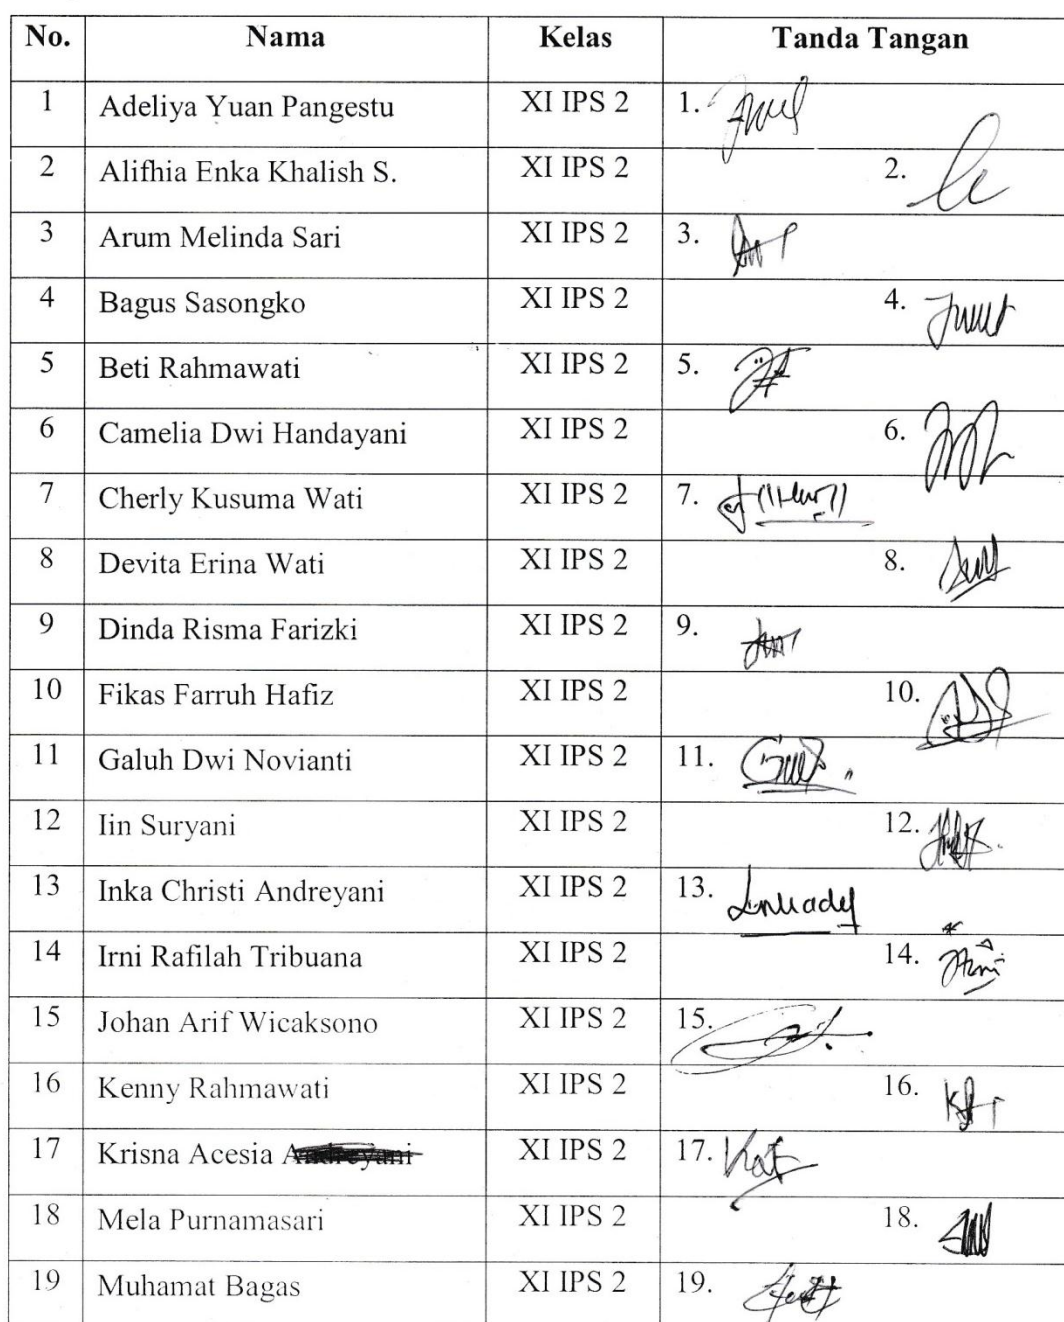 No. Nama Kelas Tanda Tangan
1 Adeliya Yuan Pangestu XI IPS 2 1.
2 Alifhia Enka Khalish S. XI IPS 2 2.
3 Arum Melinda Sari XI IPS 2 3.
4 Bagus Sasongko XI IPS 2 4.
5 Beti Rahmawati XI IPS 2 5.
6 Camelia Dwi Handayani XI IPS 2 6.
7 Cherly Kusuma Wati XI IPS 2 7.
8 Devita Erina Wati XI IPS 2 8.
9 Dinda Risma Farizki XI IPS 2 9.
10 Fikas Farruh Hafiz XI IPS 2 10.
11 Galuh Dwi Novianti XI IPS 2 11.
12 Iin Suryani XI IPS 2 12.
13 Inka Christi Andreyani XI IPS 2 13.
14 Irni Rafilah Tribuana XI IPS 2 14.
15 Johan Arif Wicaksono XI IPS 2 15.
16 Kenny Rahmawati XI IPS 2 16.
17 Krisna Acesia XI IPS 2 17.
18 Mela Purnamasari XI IPS 2 18.
19 Muhamat Bagas XI IPS 2 19.